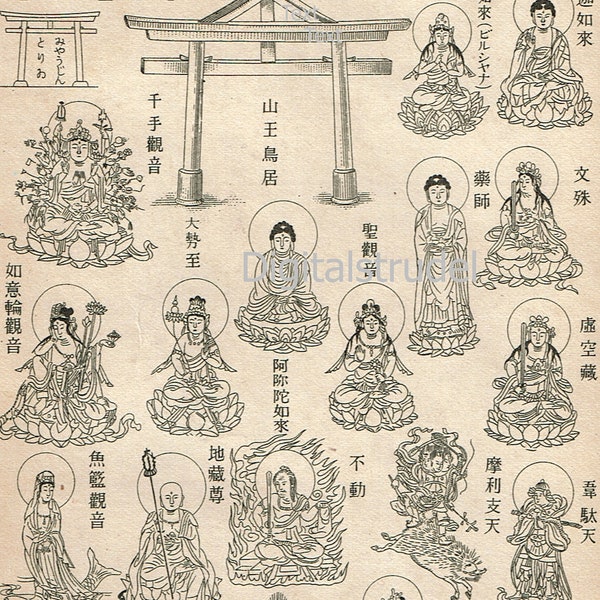 みやうじん
とりゐ
山王鳥居
如來(ビルシャナ)
如來
千手觀音
文殊
藥師
大勢至
聖觀音
Digitalstrudel
如意輪觀音
虛空藏
阿弥陀如來
魚籃觀音
地藏尊
不動
摩利支天
韋駄天